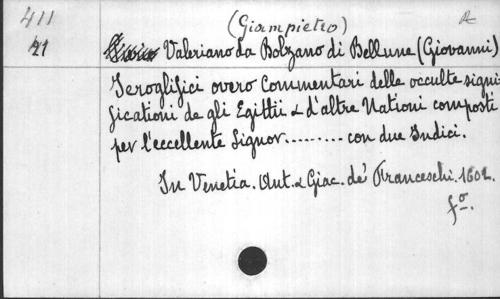 411
21
(Giampietro)
Valeriano da Bolzano di Bellune (Giovanni)
Ieroglifici overo Commentari delle occulte signi
ficationi de gli Egittii & d'altre Nationi composti
per l'eccellente Signor......... con due Indici.
In Venetia. Ant. & Giac. de' Franceschi. 1602.
fo.